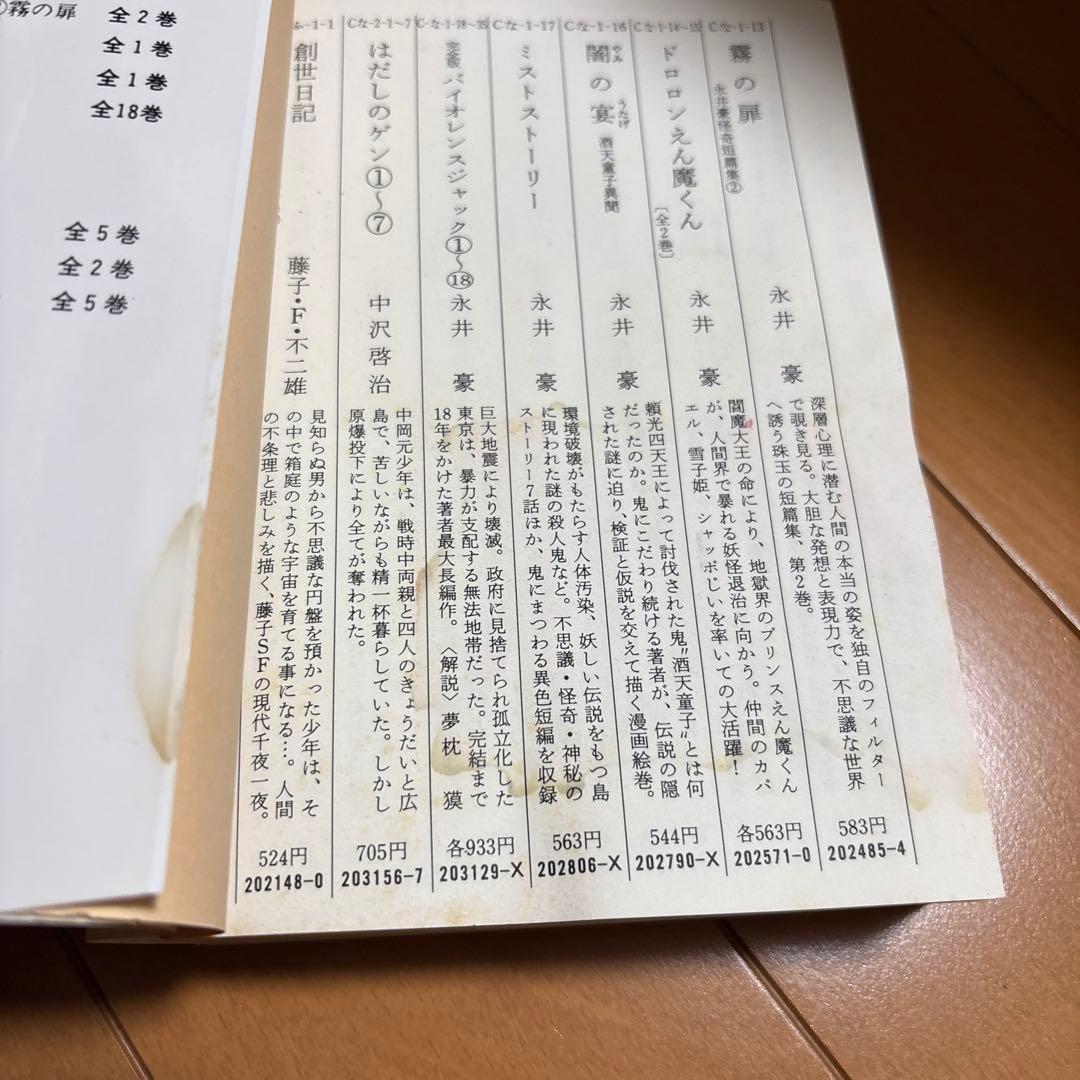 霧の扉 全2巻
全1巻
全1巻
全18巻
全5巻
全2巻
全5巻
Cな-1-13
霧の扉
永井豪怪奇短篇集②
永井 豪
深層心理に潜む人間の本当の姿を独自のフィルター
で覗き見る。大胆な発想と表現力で、不思議な世界
へ誘う珠玉の短篇集、第2巻。
583円
202485-4
Cな-1-14〜15
ドロロンえん魔くん
〔全2巻〕
永井 豪
閻魔大王の命により、地獄界のプリンスえん魔くん
が、人間界で暴れる妖怪退治に向かう。仲間のカパ
エル、雪子姫、シャッポじいを率いての大活躍!
各563円
202571-0
Cな-1-16
闇の宴
やみ
うたげ
酒天童子異聞
永井 豪
頼光四天王によって討伐された鬼"酒天童子"とは何
だったのか。鬼にこだわり続ける著者が、伝説の隠
された謎に迫り、検証と仮説を交えて描く漫画絵巻。
544円
202790-X
Cな-1-17
ミストストーリー
永井 豪
環境破壊がもたらす人体汚染、妖しい伝説をもつ島
に現われた謎の殺人鬼など。不思議・怪奇・神秘の
ストーリー7話ほか、鬼にまつわる異色短編を収録
563円
202806-X
Cな-1-18〜35
完全版 バイオレンスジャック①〜⑱
永井 豪
巨大地震により壊滅。政府に見捨てられ孤立化した
東京は、暴力が支配する無法地帯だった。完結まで
18年をかけた著者最大長編作。〈解説〉夢枕 獏
各933円
203129-X
Cな-2-1〜7
はだしのゲン①〜⑦
中沢啓治
中岡元少年は、戦時中両親と四人のきょうだいと広
島で、苦しいながらも精一杯暮らしていた。しかし
原爆投下により全てが奪われた。
705円
203156-7
-1-1
創世日記
藤子・F・不二雄
見知らぬ男から不思議な円盤を預かった少年は、そ
の中で箱庭のような宇宙を育てる事になる…。人間
の不条理と悲しみを描く、藤子SFの現代千夜一夜。
524円
202148-0